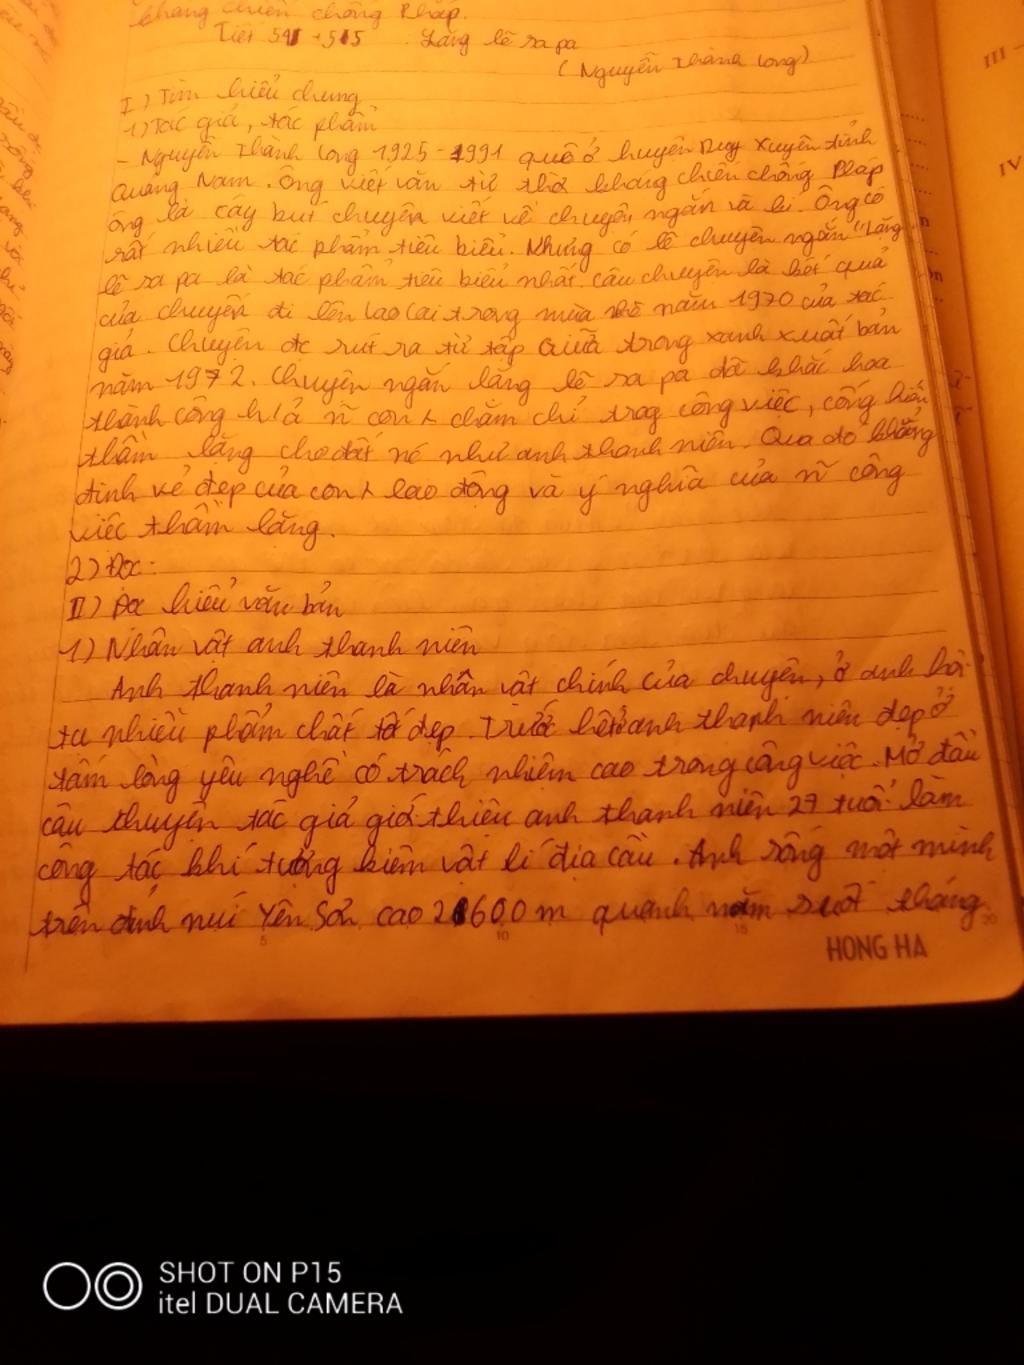 kháng chiến chống Pháp.
Tiết 541 + 515 Lặng lẽ sa pa
( Nguyễn Thành Long)
I) Tìm hiểu chung
1) Tác giả, tác phẩm
- Nguyễn Thành Long 1925-1991 quê ở huyện Duy Xuyên tỉnh
Quảng Nam. Ông viết văn từ thời kháng chiến chống Pháp
ông là cây bút chuyên viết về chuyện ngắn và kí. Ông có
rất nhiều tác phẩm tiêu biểu. Nhưng có lẽ chuyện ngắn "Lặng
lẽ sa pa là tác phẩm tiêu biểu nhất. Câu chuyện là kết quả
của chuyến đi lên Lao Cai trong mùa hè năm 1970 của tác
giả. Chuyện đc rút ra từ tập Giữa trong xanh xuất bản
năm 1972. Chuyện ngắn lặng lẽ sa pa đã khắc hoạ
thành công h/ả n~ con ng chăm chỉ trog công việc, cống hiến
thầm lặng cho đất nc như anh thanh niên. Qua đó khẳng
định vẻ đẹp của con ng lao động và ý nghĩa của n~ công
việc thầm lặng.
2) Đọc:
II) Đọc hiểu văn bản
1) Nhân vật anh thanh niên
Anh thanh niên là nhân vật chính của chuyện, ở anh hội
tụ nhiều phẩm chất tốt đẹp. Trước hết anh thanh niên đẹp ở
tấm lòng yêu nghề có trách nhiệm cao trong công việc. Mở đầu
câu thuyện tác giả giới thiệu anh thanh niên 27 tuổi làm
công tác khí tượng kiêm vật lí địa cầu. Anh sống một mình
trên đỉnh núi Yên Sơn cao 2600 m quanh năm suốt tháng
5 10 15 20
HONG HA
III -
IV
SHOT ON P15
itel DUAL CAMERA